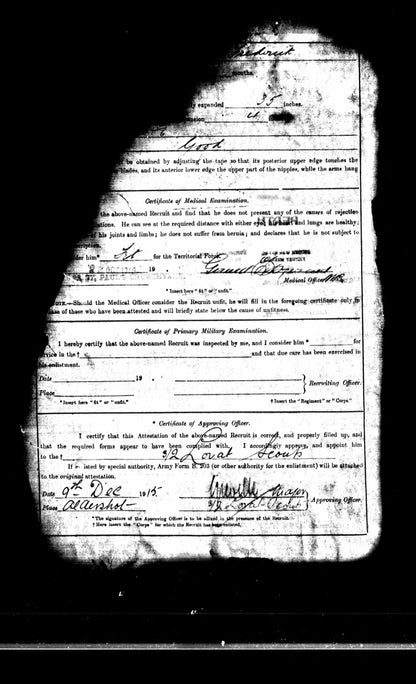 months
ly expanded 35 inches.
Good
be obtained by adjusting the tape so that its posterior upper edge touches the
blades, and its anterior lower edge the upper part of the nipples, while the arms hang
Certificate of Medical Examination.
the above-named Recruit and find that he does not present any of the causes of rejection
ations. He can see at the required distance with either eye; and lungs are healthy;
of his joints and limbs; he does not suffer from hernia; and declares that he is not subject to
der him* Fit for the Territorial Force.
19
Medical Officer
*Insert here "fit" or "unfit."
NOTE.—Should the Medical Officer consider the Recruit unfit, he will fill in the foregoing certificate only in
case of those who have been attested and will briefly state below the cause of unfitness.
Certificate of Primary Military Examination.
I hereby certify that the above-named Recruit was inspected by me, and I consider him * for
service in the † and that due care has been exercised in
his enlistment.
Date 19 .
Place } Recruiting Officer.
*Insert here "fit" or "unfit." † Insert the "Regiment" or "Corps."
* Certificate of Approving Officer.
I certify that this Attestation of the above-named Recruit is correct, and properly filled up, and
that the required forms appear to have been complied with. I accordingly approve, and appoint him
to the † 3/2 Lovat Scouts
If enlisted by special authority, Army Form B. 203 (or other authority for the enlistment) will be attached
to the original attestation.
Date 9th Dec 1915 Major
Place Aldershot 3/2 Lovat Scouts } Approving Officer.
*The signature of the Approving Officer is to be affixed in the presence of the Recruit.
† Here insert the "Corps" for which the Recruit has been enlisted.